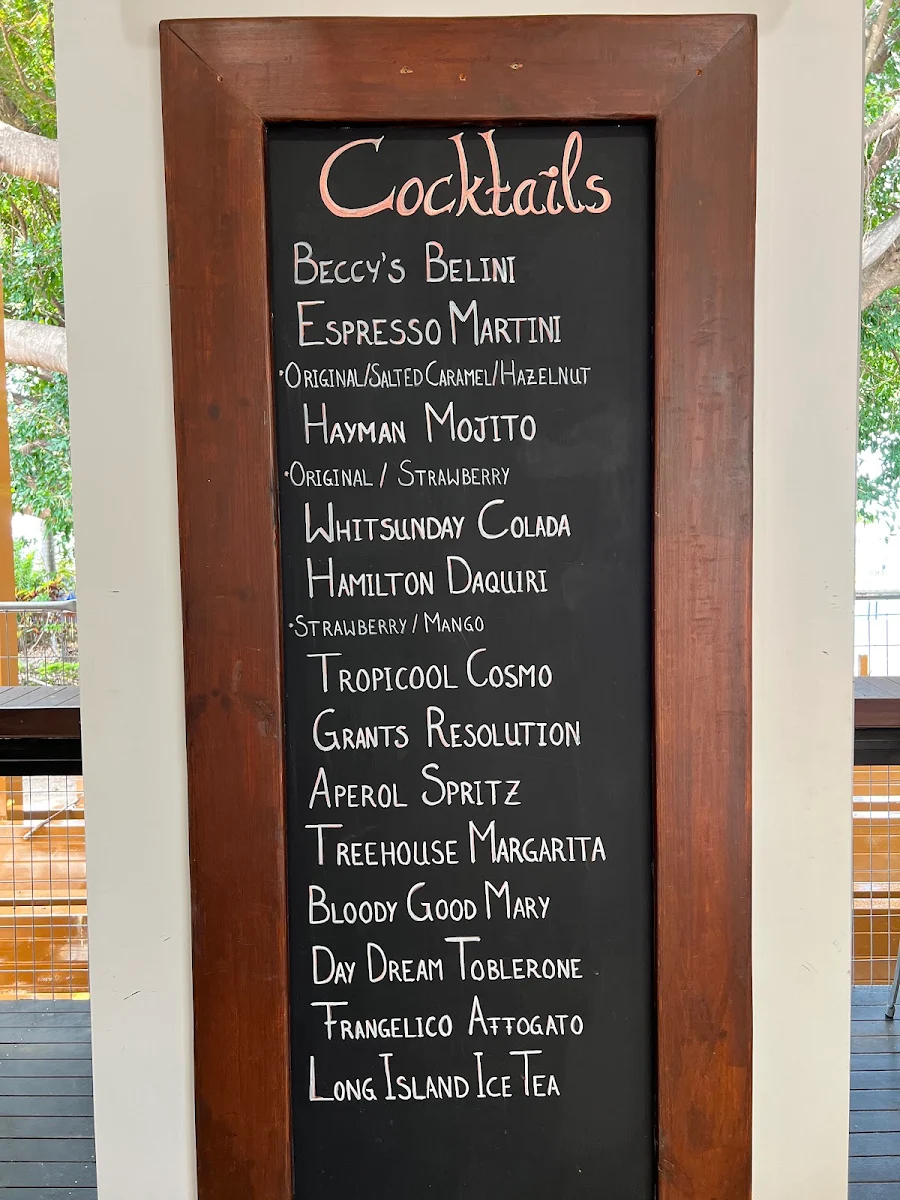 Cocktails
Beccy's Belini
Espresso Martini
·Original/Salted Caramel/Hazelnut
Hayman Mojito
·Original / Strawberry
Whitsunday Colada
Hamilton Daquiri
·Strawberry / Mango
Tropicool Cosmo
Grants Resolution
Aperol Spritz
Treehouse Margarita
Bloody Good Mary
Day Dream Toblerone
Frangelico Affogato
Long Island Ice Tea